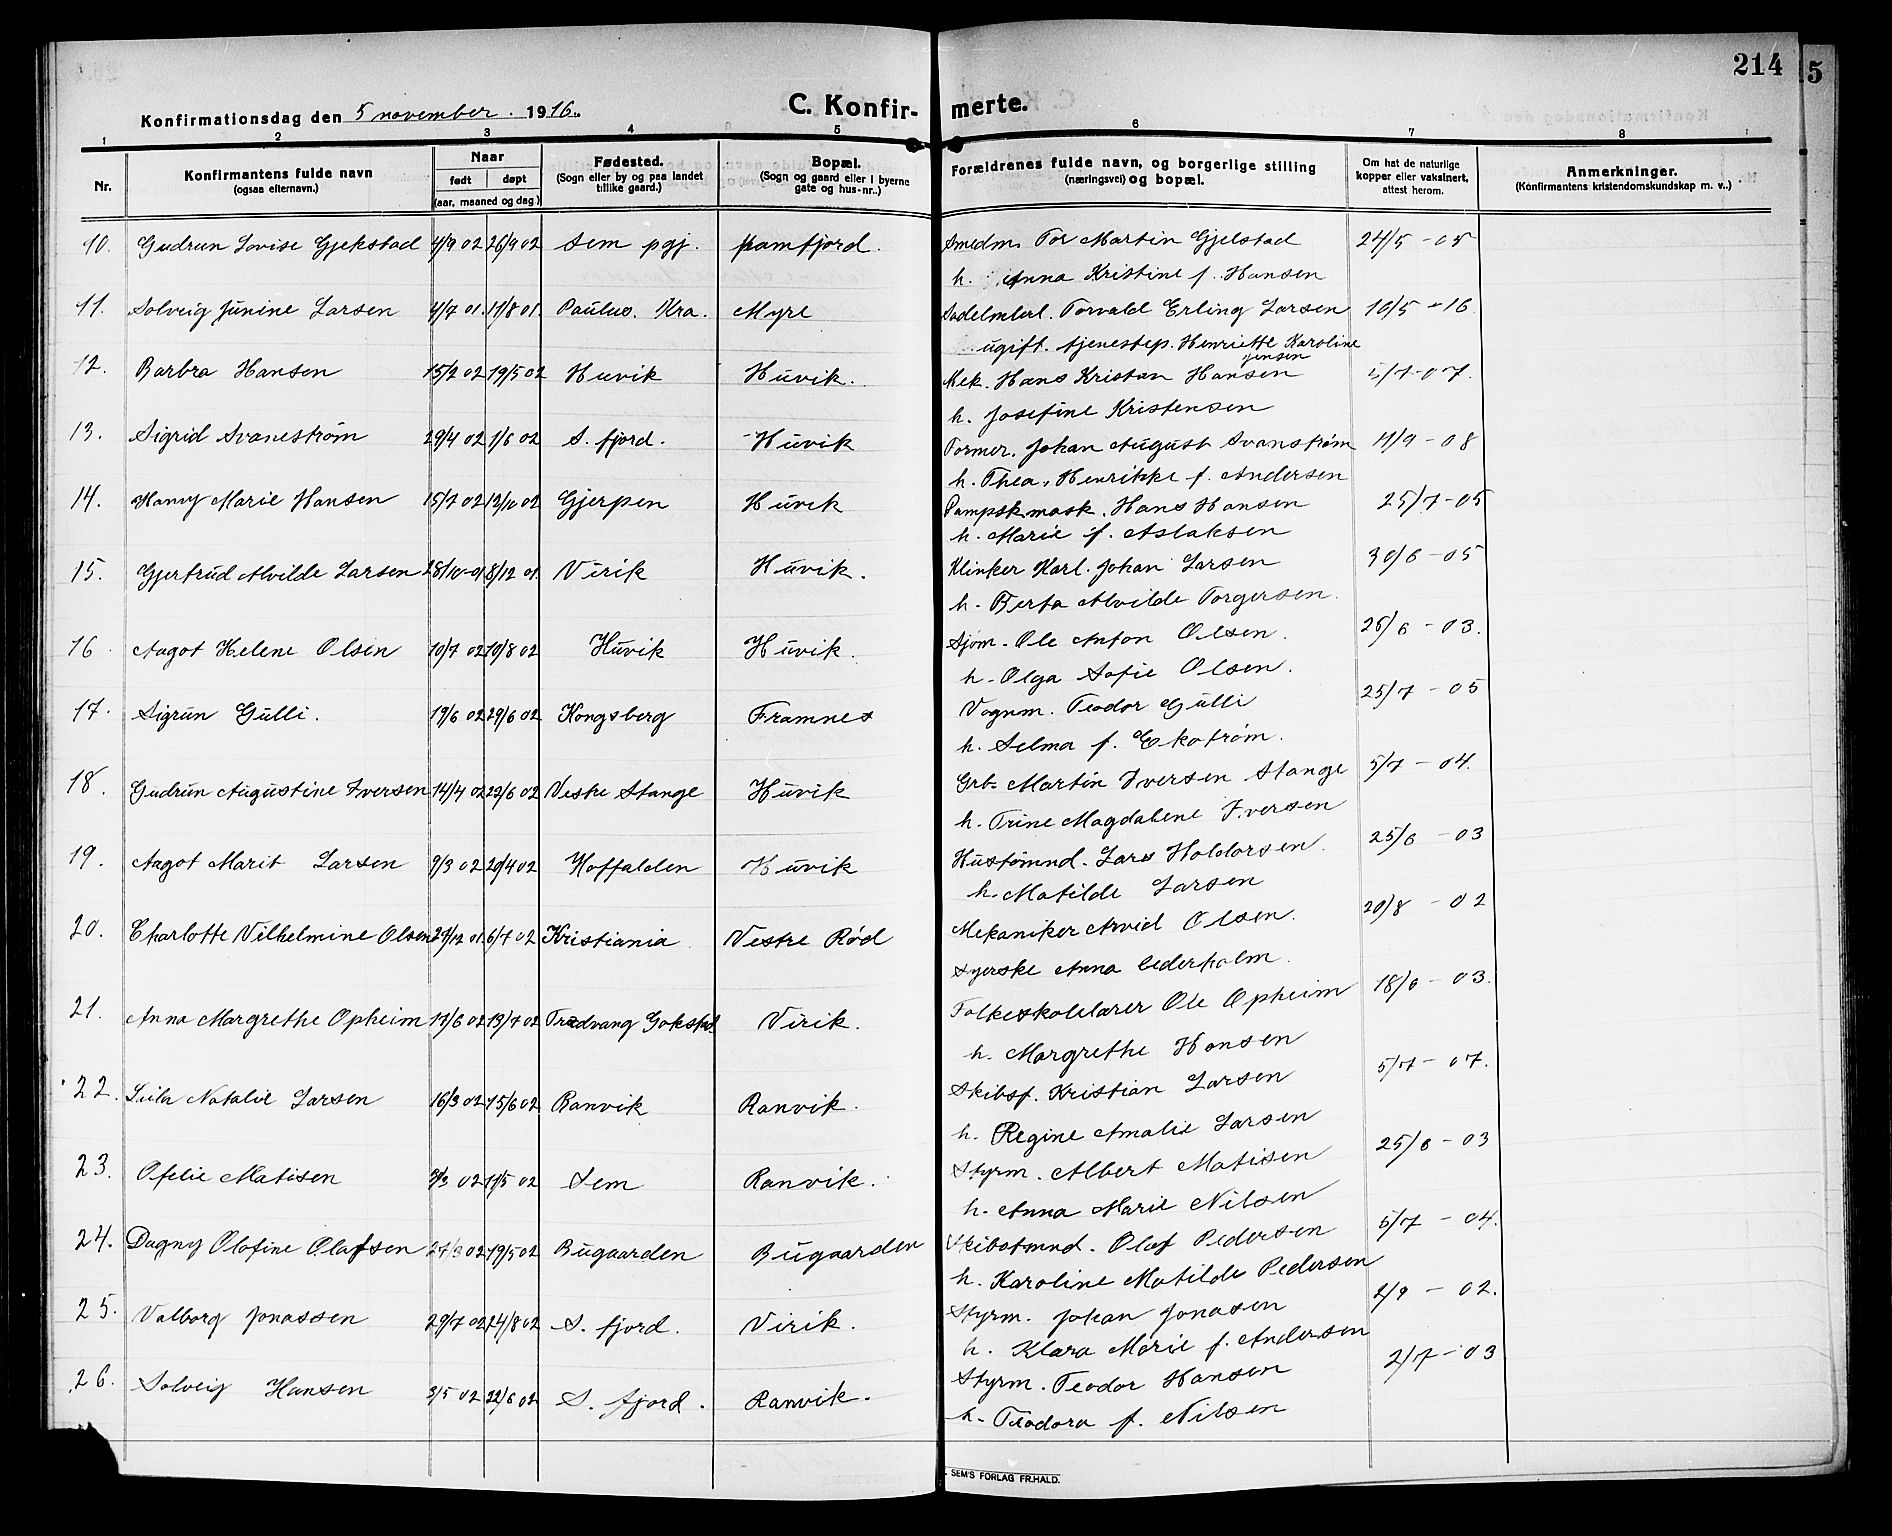 214
5
Konfirmationsdag den 5 november. 1916.
C. Konfir- merte.
1 2 3 4 5 6 7 8
Nr.
Konfirmantens fulde navn
(ogsaa efternavn.)
Naar
født døpt
(aar, maaned og dag)
Fødested.
(Sogn eller by og paa landet
tillike gaard.)
Bopæl.
(Sogn og gaard eller i byerne
gate og hus-nr..)
Forældrenes fulde navn, og borgerlige stilling
(næringsvei) og bopæl.
Om hat de naturlige
kopper eller vaksinert,
attest herom.
Anmerkninger.
(Konfirmantens kristendomskundskap m. v..)
10. Gudrun Lovise Gjekstad 4/9 02 26/9 02 Sem pgj. framfjord. Smedm. Tor Martin Gjelstad 24/5 - 05
h. Anna Kristine f. Hansen
11. Solveig Junine Larsen 4/7 01. 11/8 01. Paulus. Kra. Myre Torvald Erling Larsen 10/5 - 16
ugift. tjenestep. Henriette Karoline
Jensen
12. Barbra Hansen 15/2 02 19/5 02 Huvik Huvik. Mek. Hans Kristan Hansen 5/7-07.
h. Josefine Kristensen
13. Sigrid Svanestrøm 29/4 02 1/6 02 S. fjord. Huvik Former. Johan August Svanstrøm 11/9 - 08
h. Thea, Henrikke f. Andersen
14. Hanny Marie Hansen 15/7 02 12/10 02 Gjerpen Huvik Pampsk mask. Hans Hansen 25/7-05
h. Marie f. Aslaksen
15. Gjertrud Alvilde Larsen 28/10-01. 8/12 01. Virik Huvik. Klinker Karl. Johan Larsen 30/6 - 05
h. Berta Alvilde Torgersen.
16. Aagot Helene Olsen 10/7 02 10/8 02 Huvik Huvik. Sjøm. Ole Anton Olsen. 26/6 - 03.
h. Olga Sofie Olsen.
17. Sigrun Gulli. 19/6 02 29/6 02 Kongsberg Framnes Vognm. Teodor Gulli 25/7 - 05
h. Selma f. Ekstrøm.
18. Gudrun Augustine Iversen 14/4 02 22/6 02 Vestre Stange Huvik Grb. Martin Iversen Stange 5/7 - 04.
h. Trine Magdalene Iversen
19. Aagot Marit Larsen 9/3 02 20/4 02 Hoffalden Huvik Hustømnd. Lars Haldorsen. 25/6 - 03
h. Matilde Larsen
20. Charlotte Vilhelmine Olsen 27/12 01. 6/7 02 Kristiania Vestre Rød Mekaniker Arvid Olsen. 20/8 - 02
Syerske Anna Cederholm.
21. Anna Margrethe Opheim 11/6 02 13/7 02 Tredvang Gokstad Virik. Folkeskolelærer Ole Opheim 18/6 - 03.
h. Margrethe Hansen
22. Laila Natalie Larsen 16/3 02 15/6 02 Ranvik Ranvik. Skibsf. Kristian Larsen 5/7 - 07.
h. Regine Amalie Larsen
23. Ofelie Matisen 3/3 02 11/5 02 Sem Ranvik. Styrm. Albert Matisen 25/6 - 03
h. Anna Marie Nilsen
24. Dagny Olofine Olafsen 27/3 02 19/5 02 Bugaarden Bugaarden Skibstmnd. Olaf Pedersen 5/7 - 04.
h. Karoline Matilde Pedersen
25. Valborg Jonassen 29/7 02 24/8 02 S. fjord. Virik. Styrm. Johan Jonasen 2/9 - 02.
h. Klara Marie f. Andersen
26. Solveig Hansen 3/5 02 22/6 02 S. fjord. Ranvik. Styrm. Teodor Hansen 2/7 - 03
h. Teodora f. Nilsen
SEM'S FORLAG FR.HALD.